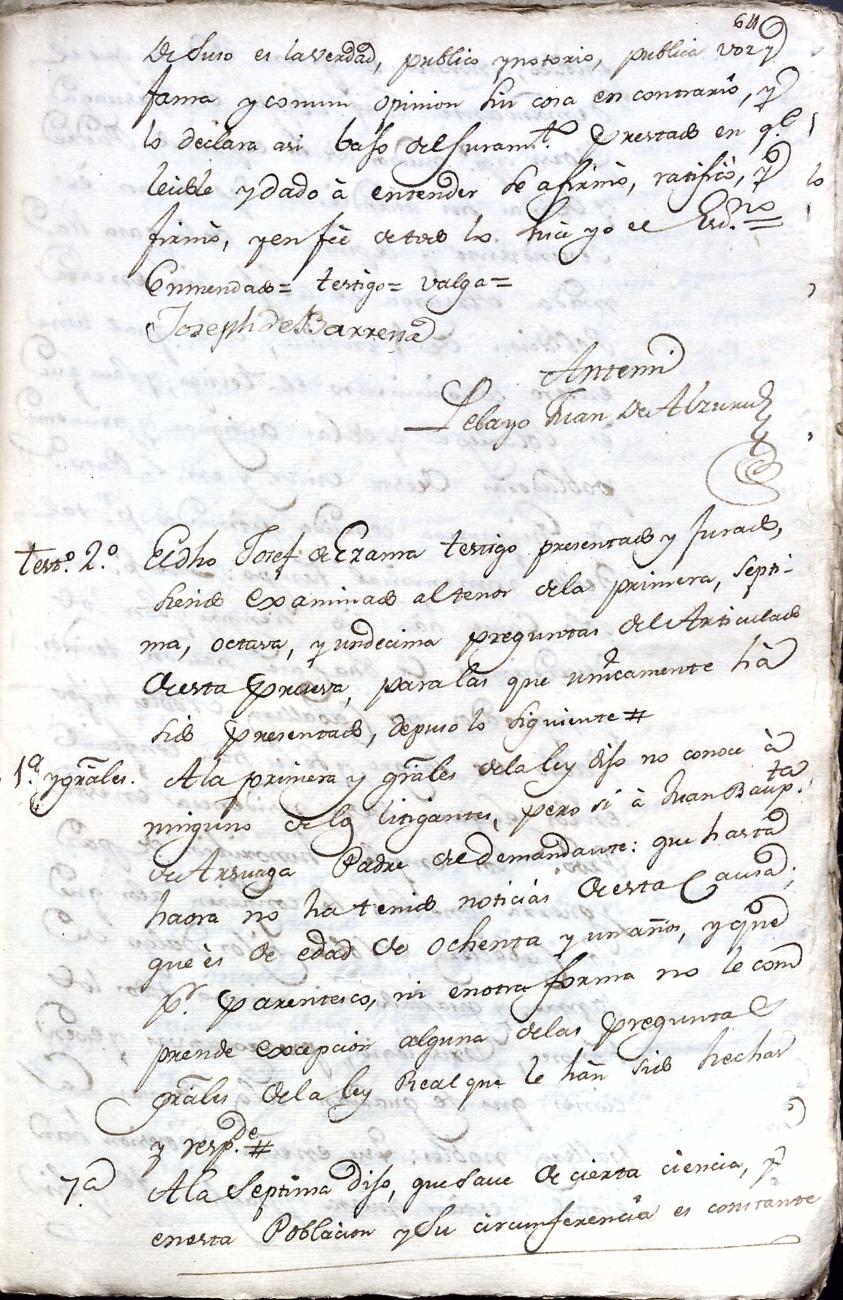 64
de suso es la verdad, publico y notorio, publica voz y
fama y comun opinion sin cosa en contrario, y
lo declara asi bajo del juram.to prestado en q.e
leidole y dado à entender se afirmò, ratificò, y lo
firmò, y en feè de todo lo hice yo el Es.no =
Enmendado = testigo = valga =
Joseph de Barrena
Antemi
Pelayo Juan de
Test.o 2.o El dho Josef de Ezama testigo presentado y jurado,
siendo examinado al tenor dela primera, septi-
ma, octava, y undecima preguntas del Articulado
de esta prueva, para las que unicamente hà
sido presentado, depuso lo siguiente #
1.a y grãles. A la primera y grãles dela ley dijo no conoce à
ninguno de los litigantes, pero si à Juan Baup.ta
de Arsuaga Padre del demandante: que hasta
haora no ha tenido noticias de esta Causa;
que ès de edad de ochenta y un años, y que
p.r parentesco, ni en otra forma no le com
prende excepcion alguna delas preguntas
grãles dela ley Real que le hàn sido hechas
y resp.de #
7.a A la septima dijo, que save de cierta ciencia, y
en esta Poblacion y su circumferencia es constante